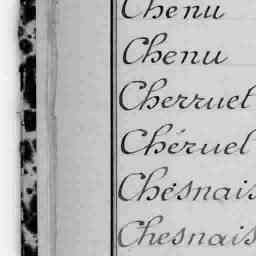 Chenu
Chenu
Cherruel
Chéruel
Chésnais
Chesnais